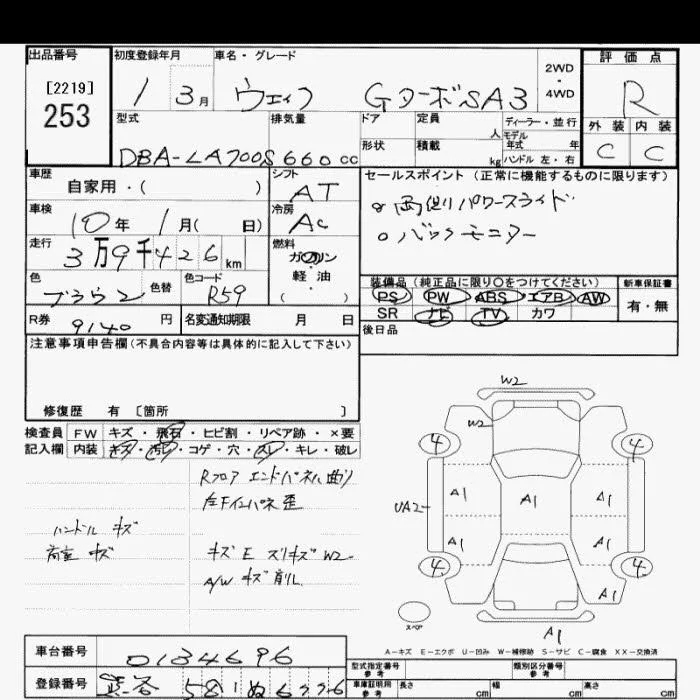 出品番号
[2219]
253
初度登録年月
1 3月
車名・グレード
ウェイク GターボSA3
2WD
・
4WD
評価点
R
外装 内装
C C
型式
DBA-LA700S
排気量
660cc
ドア
定員
人
ディーラー・並行
モデル
年式 年
形状
積載
kg
ハンドル 左・右
車歴
自家用・( )
シフト
AT
車検
10年 1月( 日)
冷房
AC
走行
3万9千426km
燃料
ガソリン
・
軽油
( )
色
ブラウン
色替
色コード
R59
R券
9140円
名変通知期限 月 日
セールスポイント(正常に機能するものに限ります)
○両側パワースライド
○バックモニター
装備品(純正品に限り○をつけてください)
PS PW ABS エアB AW
SR ナビ TV カワ
新車保証書
有・無
後日品
注意事項申告欄(不具合内容等は具体的に記入して下さい)
修復歴 有 〔箇所 〕
検査員
記入欄
FW キズ・飛石・ヒビ割・リペア跡・×要
内装 キズ・汚レ・コゲ・穴・スレ・キレ・破レ
Rフロア エンドパネル曲り
左Fインパネ歪
ハンドル キズ
荷室 キズ
キズ E スリキズ W2
A/W キズ 削レ
W2
W2
4 4
A1 A1 A1
UA2
A1 A1
4 4
A1
スペア
A1
A-キズ E-エクボ U-凹み W-補修跡 S-サビ C-腐食 XX-交換済
車台番号
0134696
登録番号
型式指定番号
参考
類別区分番号
参考
車庫証明用
参考
長さ cm
幅 cm
高さ cm